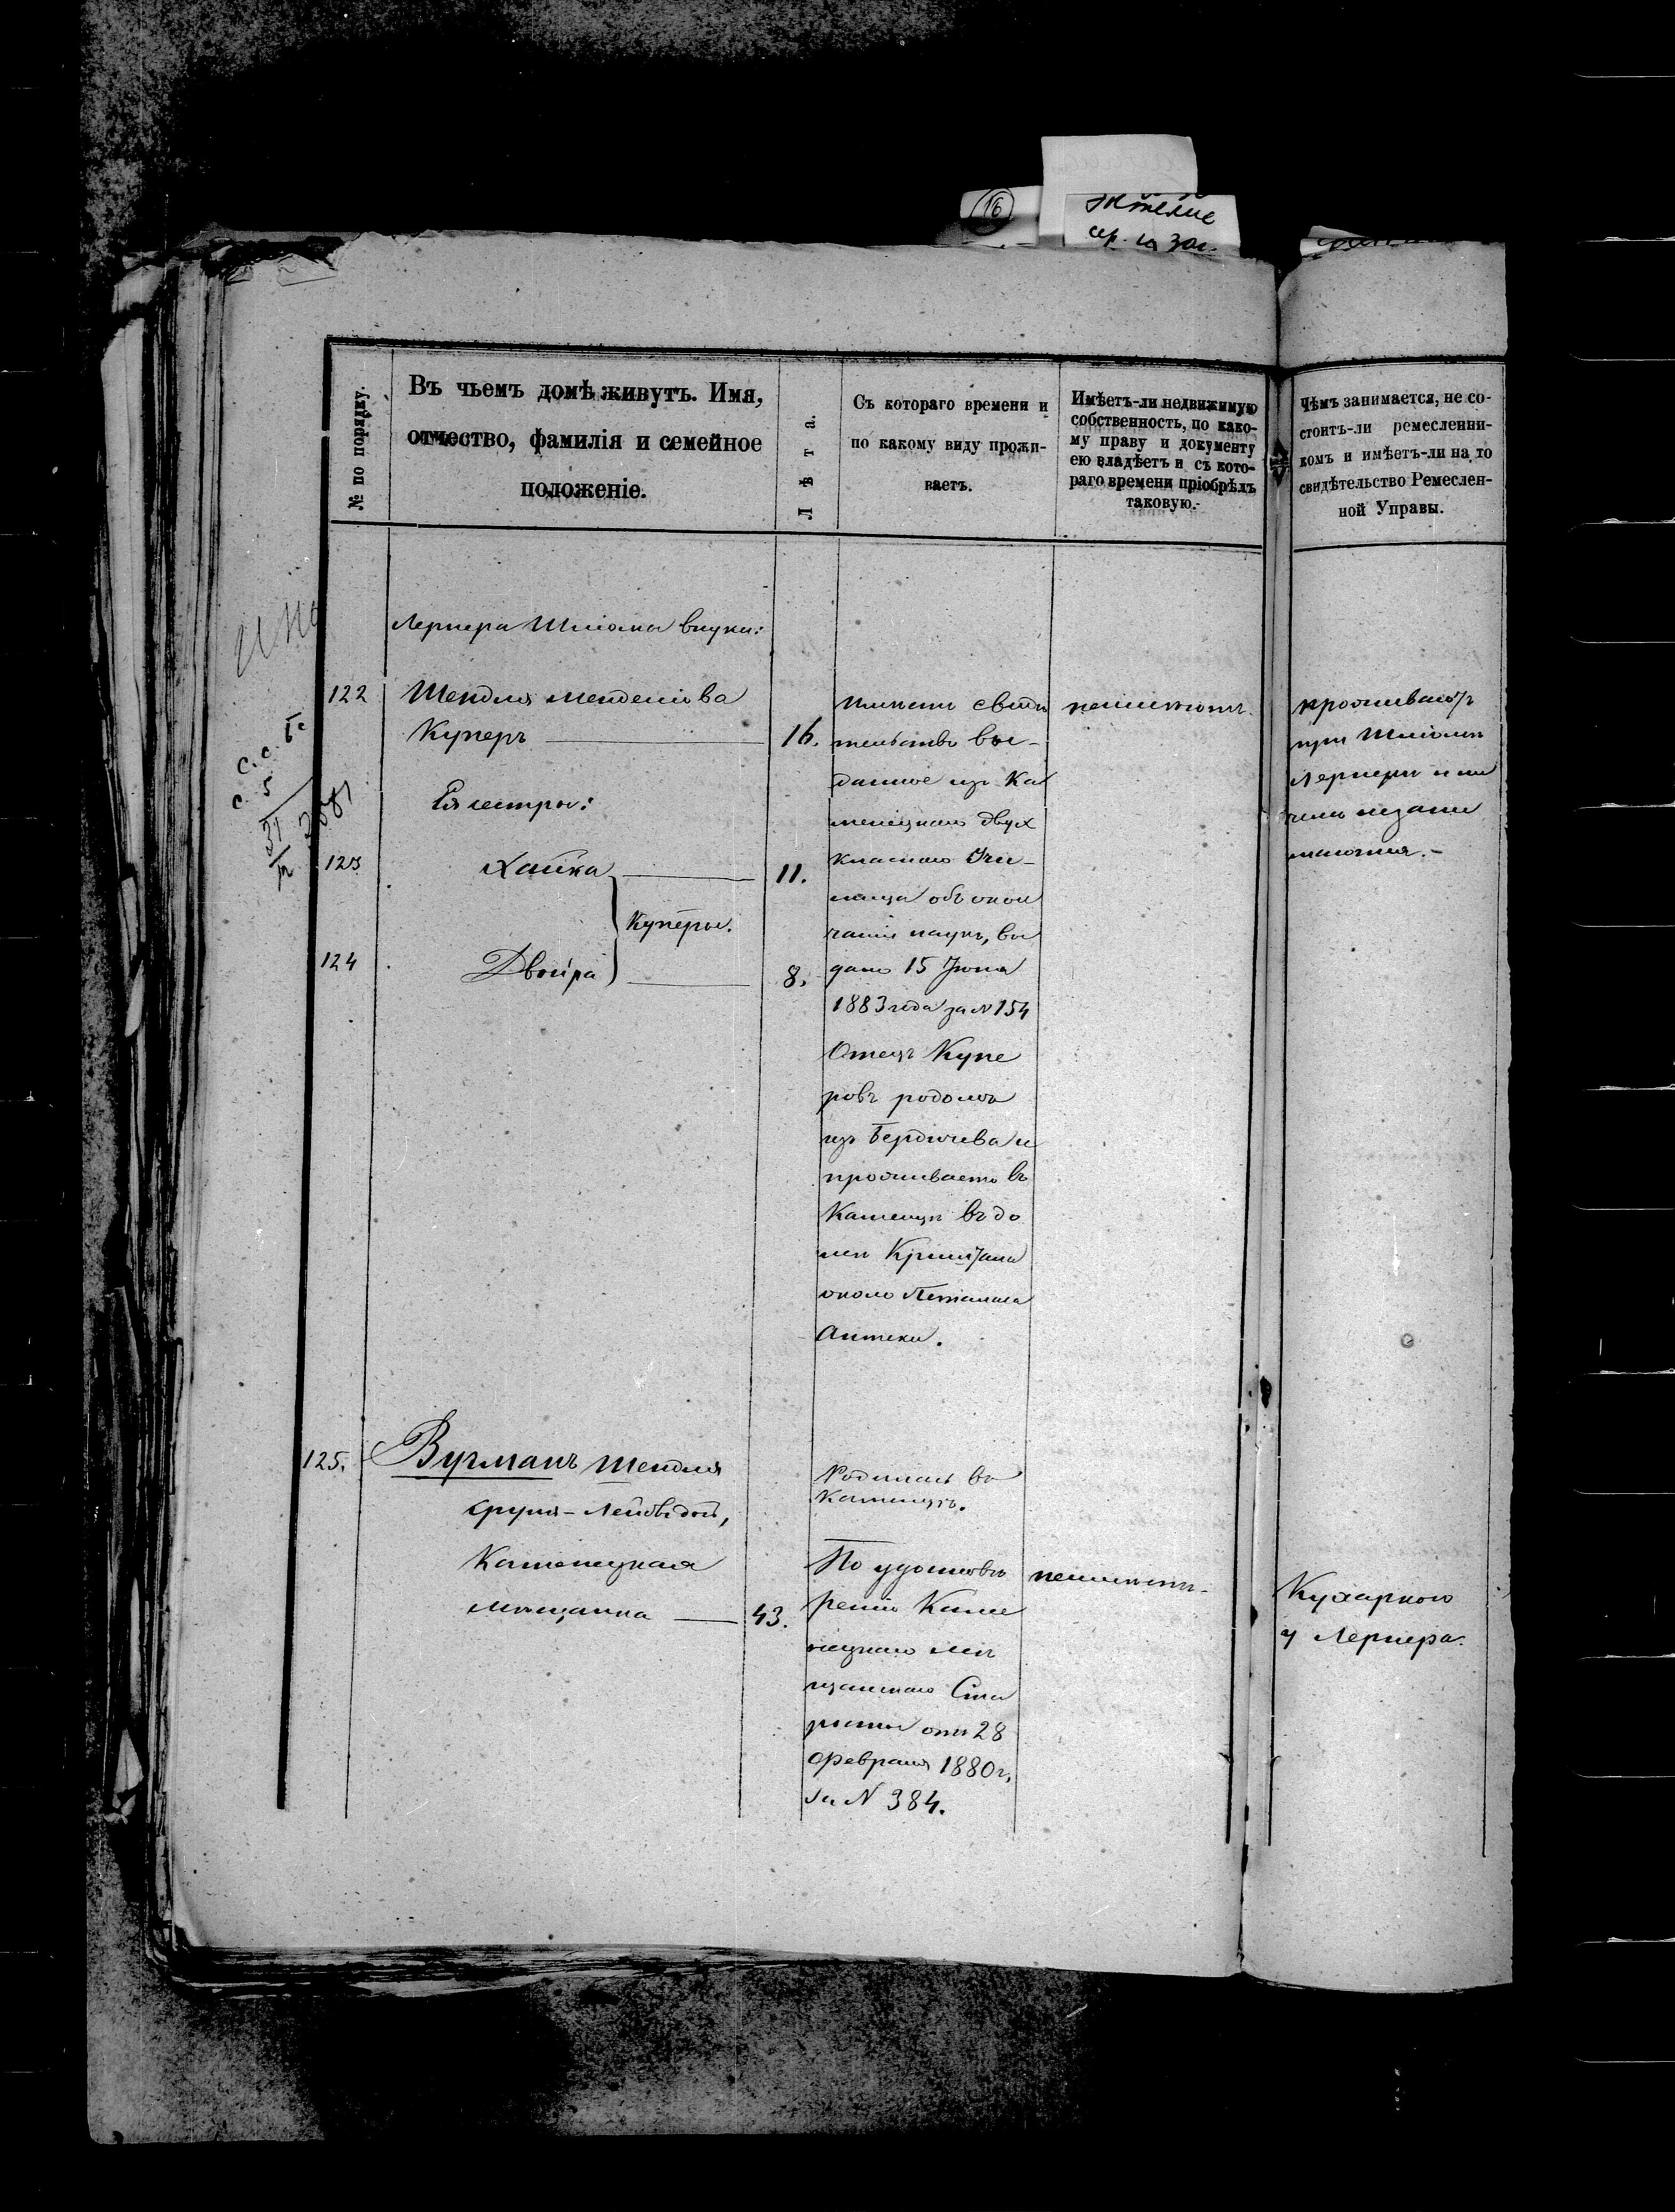 16
Въ чьемъ домѣ живутъ. Имя,
отчество, фамилія и семейное
положеніе.
№ по порядку.
Лѣта.
Съ котораго времени и
по какому виду прожи-
ваетъ.
Имѣетъ-ли недвижимую
собственность, по како-
му праву и документу
ею владѣетъ и съ кото-
раго времени пріобрѣлъ
таковую.
Чѣмъ занимается, не со-
стоитъ-ли ремесленни-
комъ и имѣетъ-ли на то
свидѣтельство Ремеслен-
ной Управы.
Лернера Шліома внуки:
122
Шендля Менделіова
Куперъ
16.
Ея сестры:
123
Хайка
11.
Куперы.
124
Двойра
8.
имѣетъ свидѣ
тельство вы-
данное изъ Ка
менецкаго двух
класнаго Учи-
лища объ окон
чаніи наукъ, вы
дано 15 Іюня
1883 года за N 154
Отецъ Купе
ровъ родомъ
изъ Бердичева и
проживаетъ въ
Каменцѣ въ до
мѣ
около
Аптеки.
неимѣютъ.
проживаютъ
при Шліомѣ
Лернерѣ и ни
чемъ незани
маются.-
125.
Вугманъ Шендля
Сруля-Лейбовой,
Каменецкая
мѣщанка
43.
Родилась въ
Каменцѣ.
По удостовѣ
ренію Каме
нецкаго Мѣ
щанскаго Ста
росты отъ 28
Февраля 1880 г.
за N 384.
неимѣетъ.
Кухаркою
у Лернера.